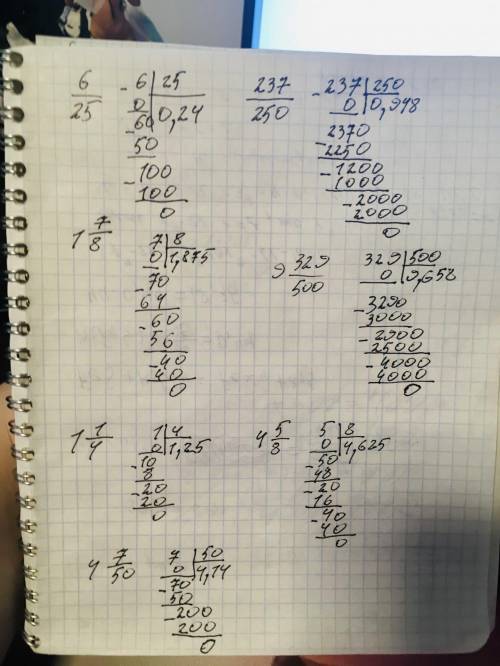 6/25
-6 | 25
0 | 0,24
-60
50
-100
100
0
237/250
-237 | 250
0 | 0,948
2370
-2250
-1200
1000
-2000
2000
0
1 7/8
7 | 8
0 | 1,875
-70
64
-60
56
-40
40
0
9 329/500
329 | 500
0 | 9,658
-3290
3000
-2900
2500
-4000
4000
0
1 1/4
1 | 4
0 | 1,25
-10
8
-20
20
0
4 5/8
5 | 8
0 | 4,625
-50
48
-20
16
-40
40
0
4 7/50
7 | 50
0 | 4,14
-70
50
-200
200
0